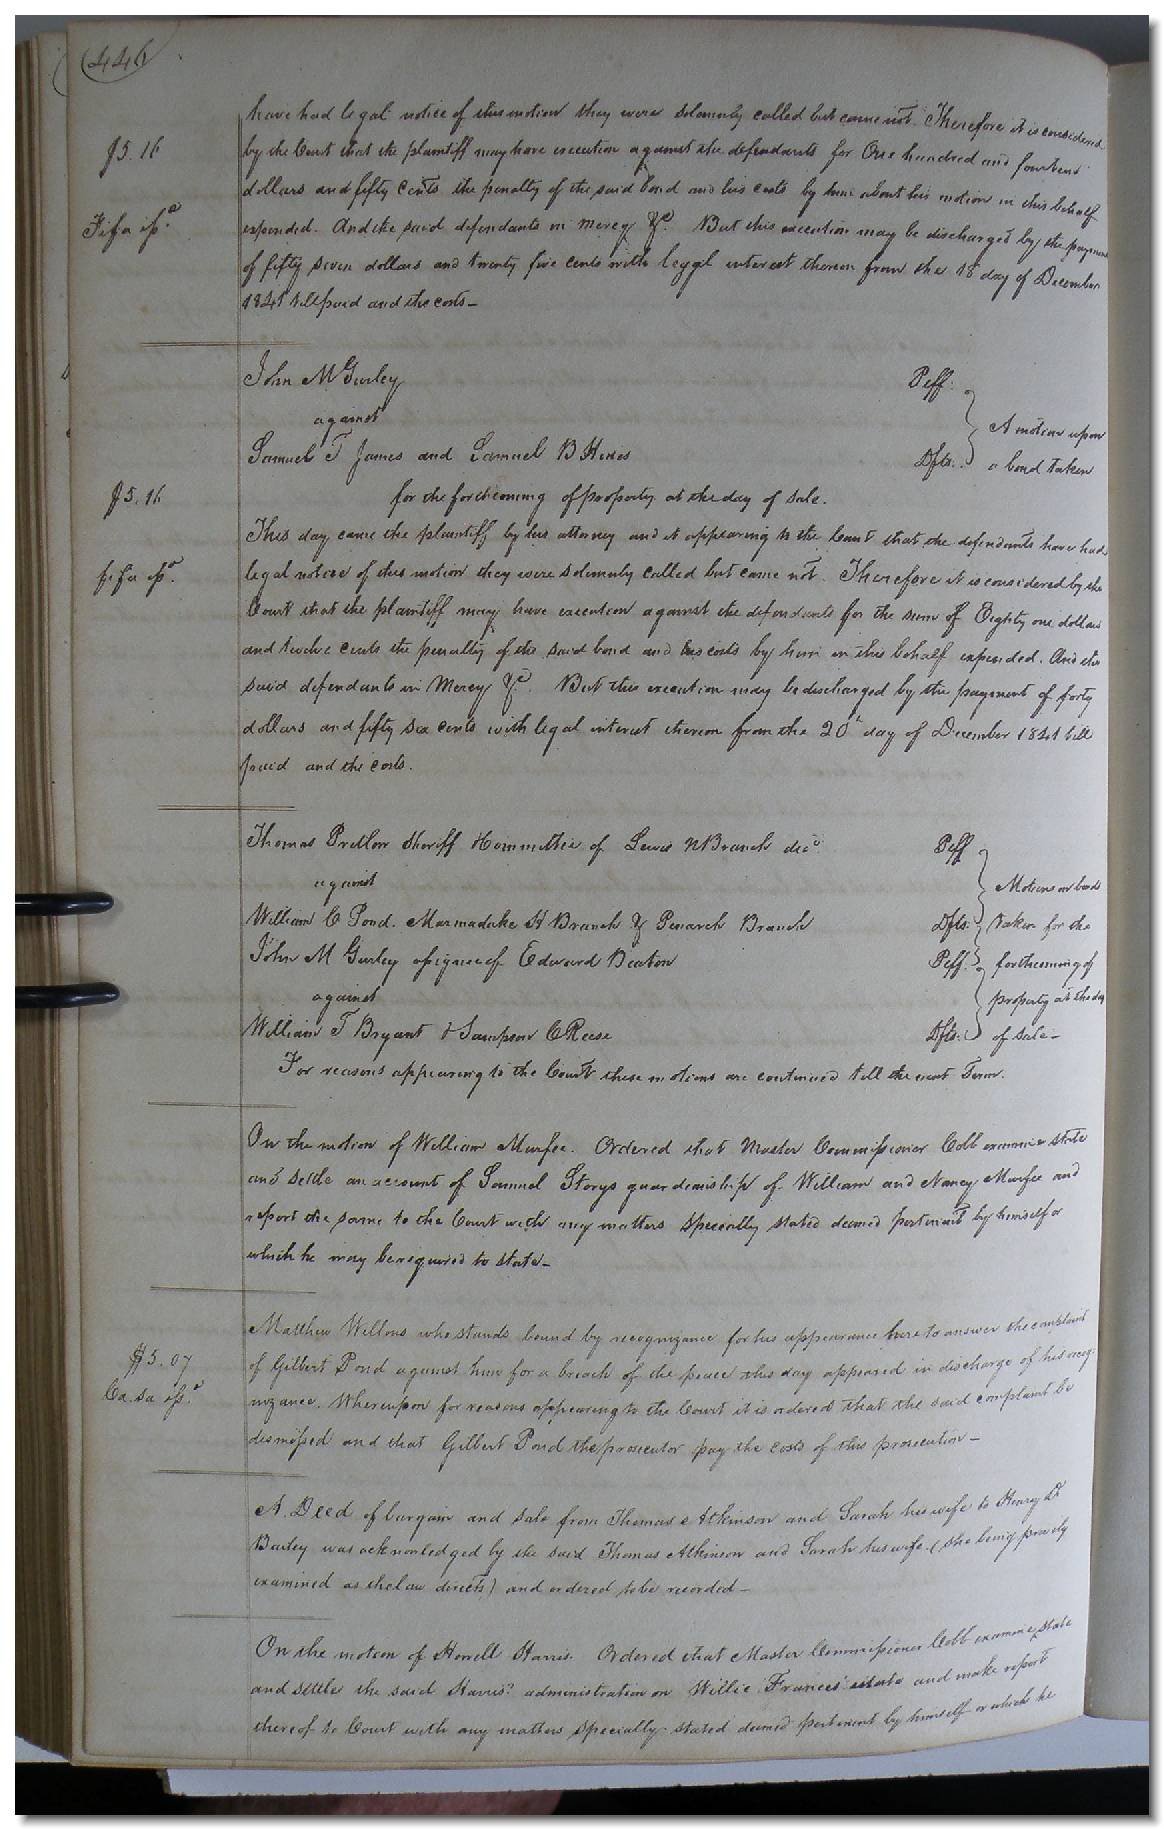 446
have had legal notice of this motion they were solemnly called but came not. Therefore it is considered
$5.16
by the Court that the plaintiff may have execution against the defendants for One hundred and fourteen
dollars and fifty cents the penalty of the said bond and his costs by him about his motion in this behalf
Fi fa issd.
expended. And the said defendants in mercy &c. But this execution may be discharged by the payment
of fifty seven dollars and twenty five cents with legal interest thereon from the 18 day of December
1841 till paid and the costs—
John McGurley Plff.
against
A motion upon
Samuel T James and Samuel B Hines Dfts. a bond taken
$5.16
for the forthcoming of property at the day of sale.
This day came the plaintiff by his attorney and it appearing to the Court that the defendants have had
fi fa issd.
legal notice of this motion they were solemnly called but came not. Therefore it is considered by the
Court that the plaintiff may have execution against the defendants for the sum of Eighty one dollars
and twelve cents the penalty of the said bond and his costs by him in this behalf expended. And the
said defendants in Mercy &c. But this execution may be discharged by the payment of forty
dollars and fifty six cents with legal interest thereon from the 20th day of December 1841 till
paid and the costs.
Thomas Pretlow Sheriff & Committee of Lewis Branch decd. Plff
against Motions on bonds
William C Pond. Marmaduke H Branch & Branch Dfts. taken for the
John M Gurley assignee of Edward Beaton Plff. forthcoming of
against property at the day
William T Bryant & Sampson C Reese Dfts. of sale—
For reasons appearing to the Court these motions are continued till the next Term.
On the motion of William Murfee. Ordered that Master Commissioner Cobb examine state
and settle an account of Samuel Storys guardianship of William and Nancy Murfee and
report the same to the Court with any matters specially stated deemed pertinent by himself or
which he may be required to state—
Matthew Willons who stands bound by recognizance for his appearance here to answer the complaint
$5.07
of Gilbert Pond against him for a breach of the peace this day appeared in discharge of his recog-
Ca. sa issd.
nizance. Whereupon for reasons appearing to the Court it is ordered that the said complaint be
dismissed and that Gilbert Pond the prosecutor pay the costs of this prosecution—
A. Deed of bargain and sale from Thomas Atkinson and Sarah his wife to Henry D
Bailey was acknowledged by the said Thomas Atkinson and Sarah his wife (she being privily
examined as the law directs) and ordered to be recorded—
On the motion of Howell Harris. Ordered that Master Commissioner Cobb examine state
and settle the said Harris' administration on Willie Frances' estate and make report
thereof to Court with any matters specially stated deemed pertinent by himself or which he